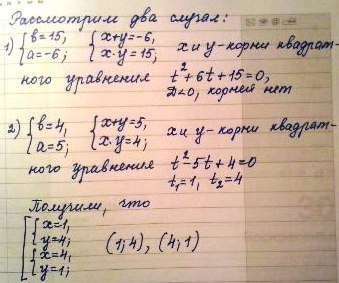 Рассмотрим два случая:
1) { b=15, a=-6; { x+y=-6, x·y=15; x и y-корни квадрат-
ного уравнения t²+6t+15=0,
D<0, корней нет
2) { b=4, a=5; { x+y=5, x·y=4; x и y-корни квадрат-
ного уравнения t²-5t+4=0
t₁=1, t₂=4
Получим, что
[ { x=1,
y=4; (1;4), (4;1)
{ x=4,
y=1;